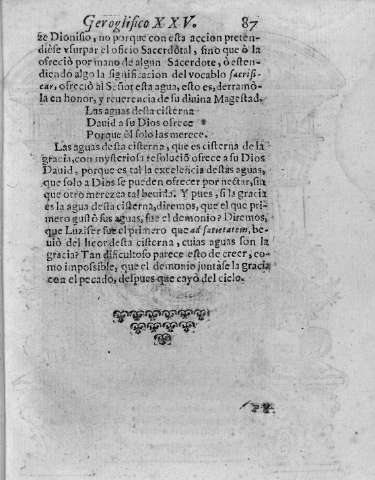 Geroglifico XXV. 87
ze Dionisio, no porque con esta accion preten-
diése vsurpar el oficio Sacerdòtal, sino que ò la
ofreciò por mano de algun Sacerdote, ò esten-
diendo algo la significacion del vocablo sacrifi-
car, ofreciò al Señor esta agua, esto es, derramò-
la en honor, y reuerencia de su diuina Magestad.
Las aguas desta cisterna
Dauid a su Dios ofrece
Porque èl solo las merece.
Las aguas desta cisterna, que es cisterna de la
gracia, con mysteriosa resoluciõ ofrece a su Dios
Dauid, porque es tal la excelencia destas aguas,
que solo a Dios se pueden ofrecer por nectar, sin
que otro merezca tal bebida. Y pues, si la gracia
es la agua desta cisterna, diremos, que el que pri-
mero gustò sus aguas, fue el demonio? Diremos,
que Luzifer fue el primero que ad satietatem, be-
uiò del licor desta cisterna, cuias aguas son la
gracia? Tan dificultoso parece esto de creer, co-
mo impossible, que el demonio juntàse la gracia
con el pecado, despues que cayò del cielo.